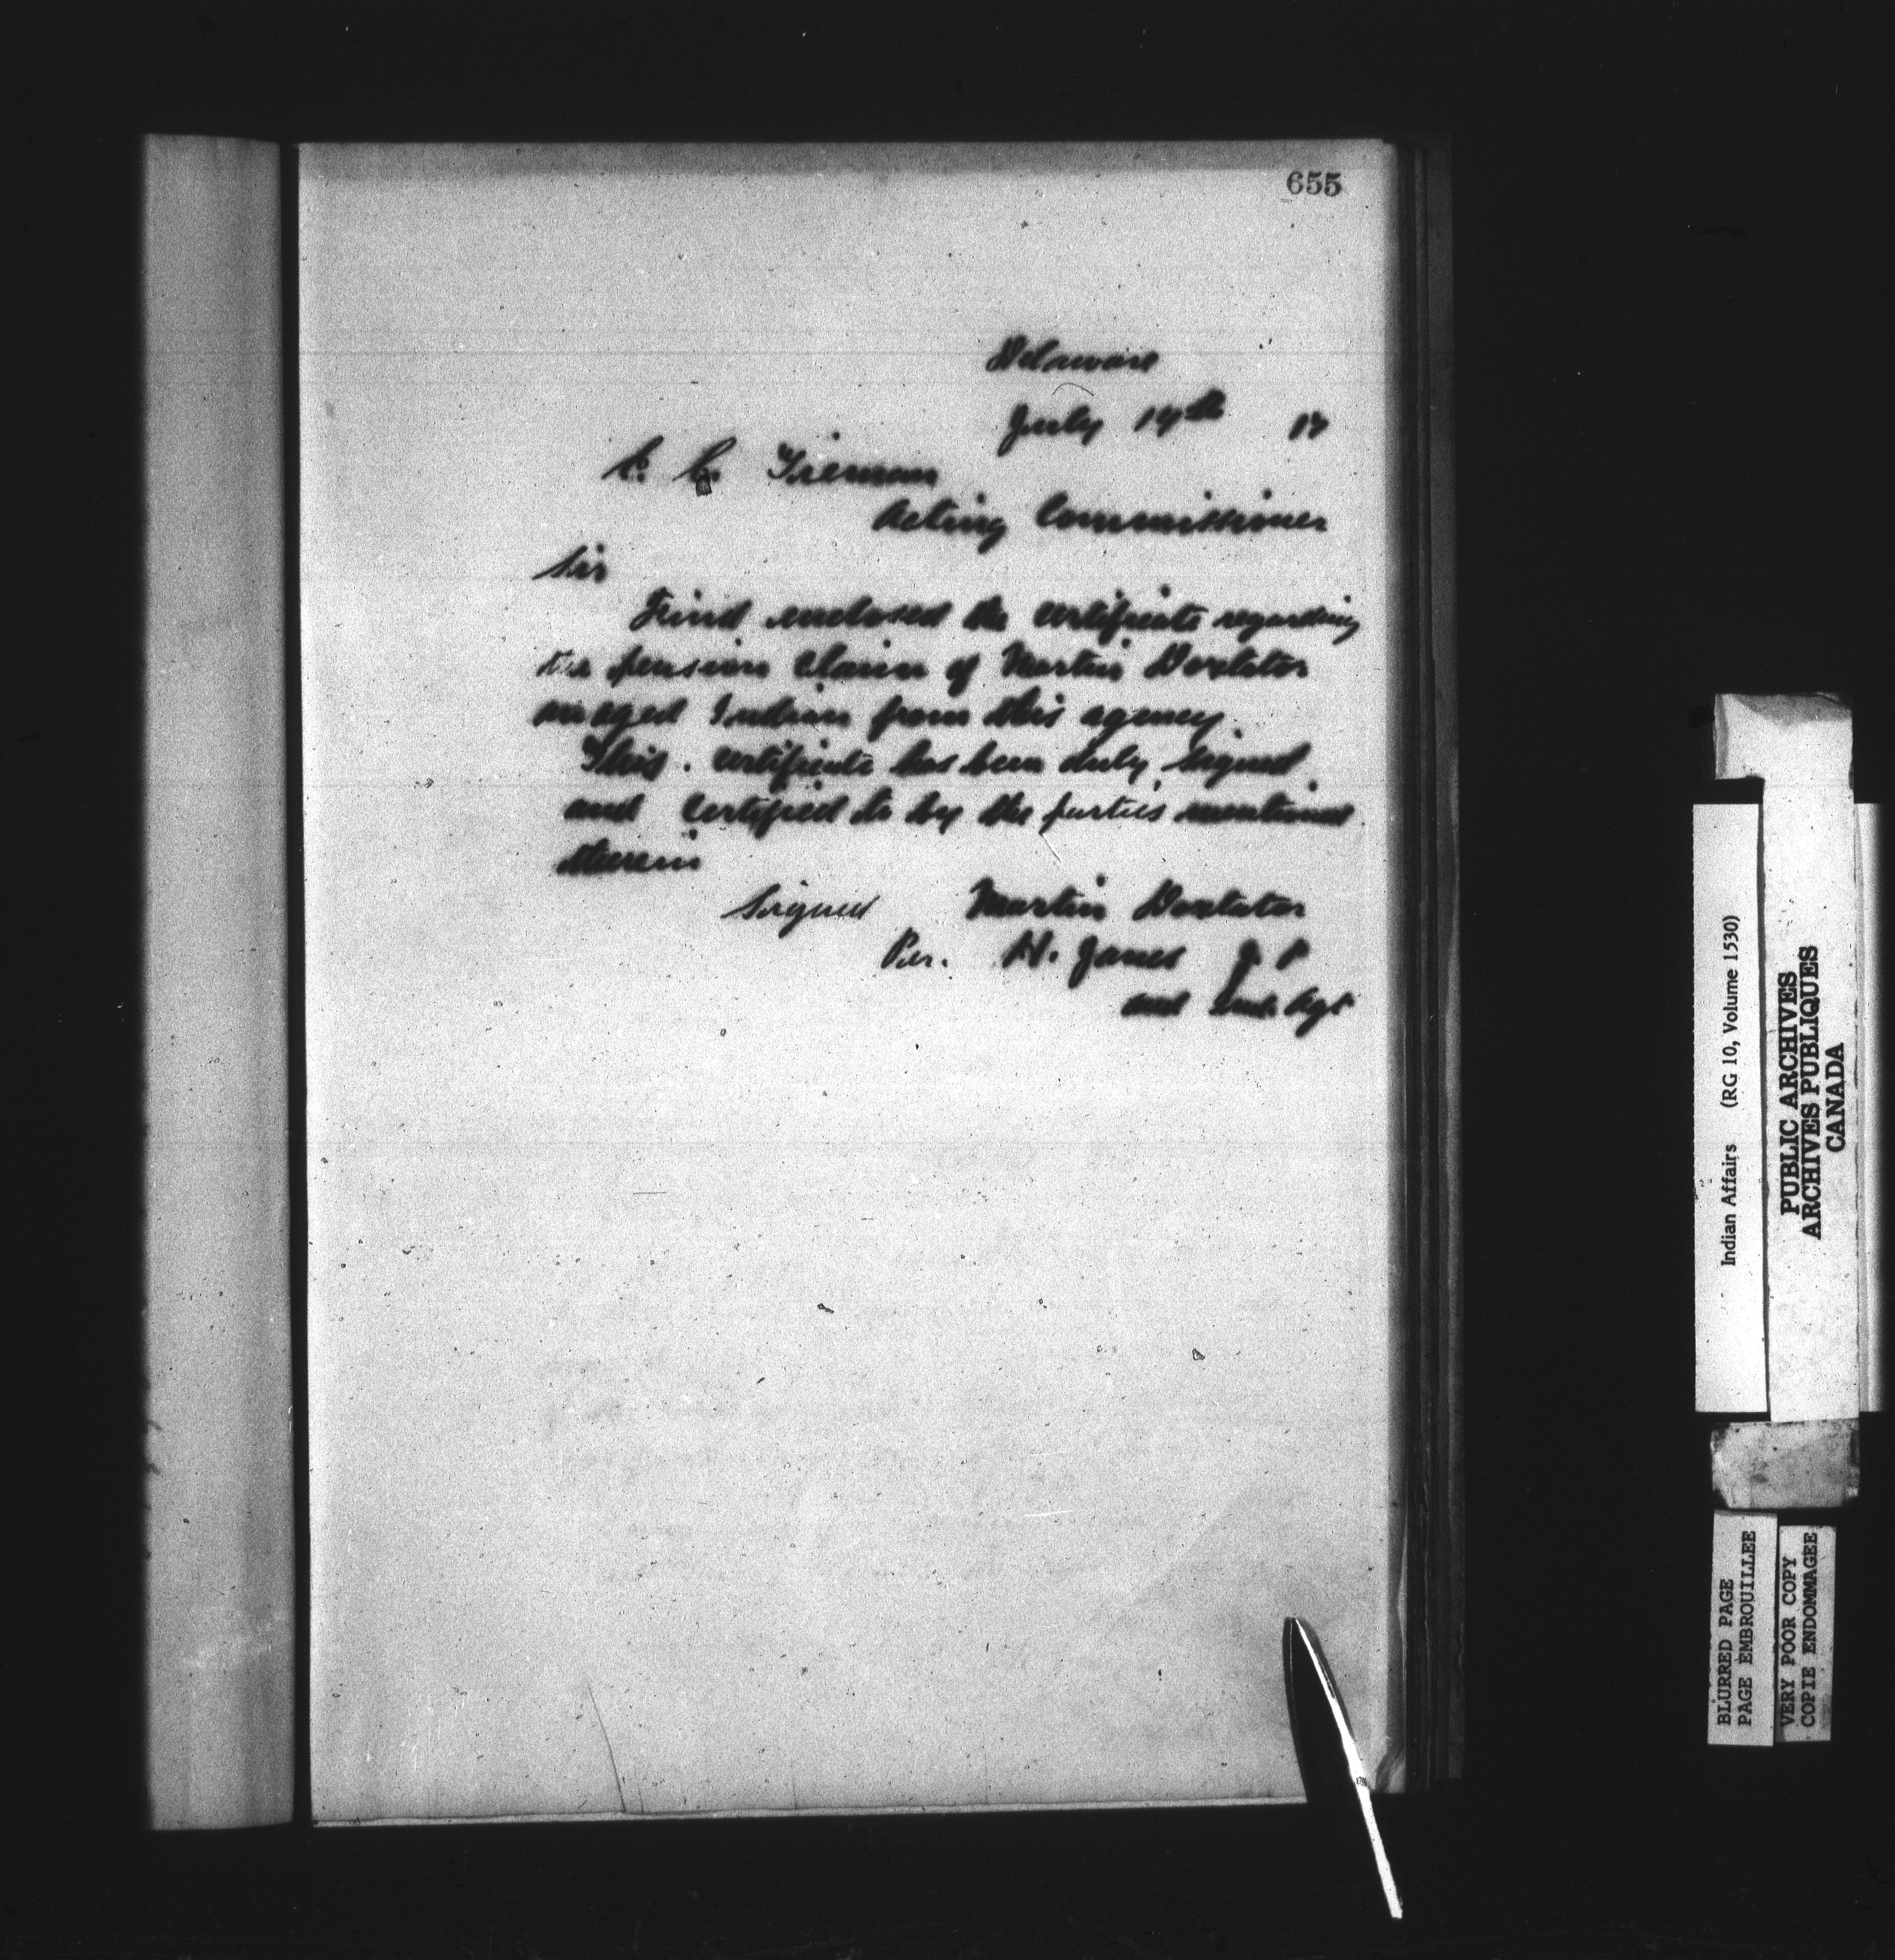 655
Delaware
July 14th 13
C. C. Tieman
Acting Commissioner
Sir
Find enclosed the certificate regarding
the pension claim of Martin Doxtator
an aged Indian from this agency
This certificate has been duly signed
and certified to by the parties mentioned
therein
Signed Martin Doxtator
Per. H. Janes J. P
and Ind. Agt
Indian Affairs (RG 10, Volume 1530)
PUBLIC ARCHIVES
ARCHIVES PUBLIQUES
CANADA
BLURRED PAGE
PAGE EMBROUILLEE
VERY POOR COPY
COPIE ENDOMMAGEE